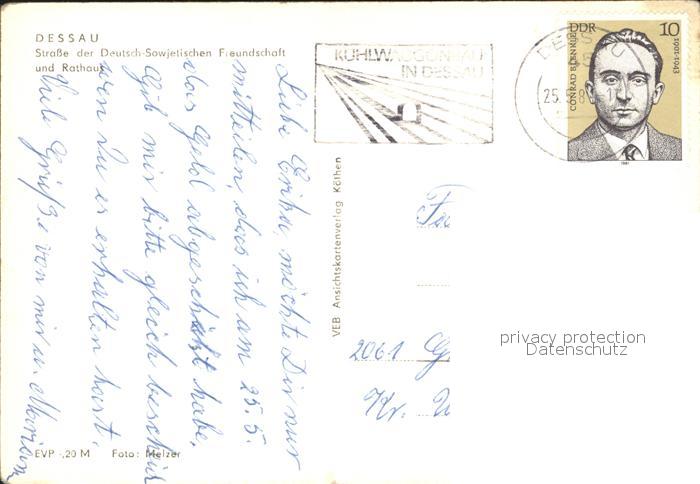 DESSAU
Straße der Deutsch-Sowjetischen Freundschaft
und Rathaus
Liebe Erika, möchte Dir nur
mitteilen, dass ich am 25.5.
das Geld abgeschickt habe.
Gib mir bitte gleich bescheid
wenn Du es erhalten hast.
Viele Grüße von mir u. Marian
EVP -,20 M Foto: Melzer
VEB Ansichtskartenverlag Köthen
KÜHLWAGGONBAU
IN DESSAU
DESSAU
25.
DDR 10
CONRAD BLENKLE
1901-1943
1981
2061
Kr.
privacy protection
Datenschutz